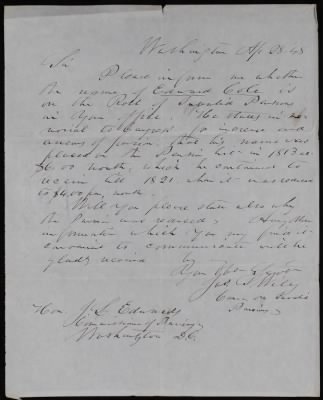 Washington Ap. 28. 48
Sir
Please inform me whether
the name of Edward Cole is
on the Roll of Invalid Pensions
in your office. He states in me-
morial to Congress for increase and
arrears of pension, that his name was
placed on the Pension list in 1813 at
$6.00 month, which he continued to
receive till 1821, when it was reduced
to $4.00 per month.
Will you please state also why
the Pension was reduced, & any other
information which you may find it
convenient to communicate will be
gladly received
by
Your Oben Servt
Jas. S. Wiley
Com on Invalid
Pensions
Hon. J. L. Edwards
Commissioner of Pensions
Washington D.C.